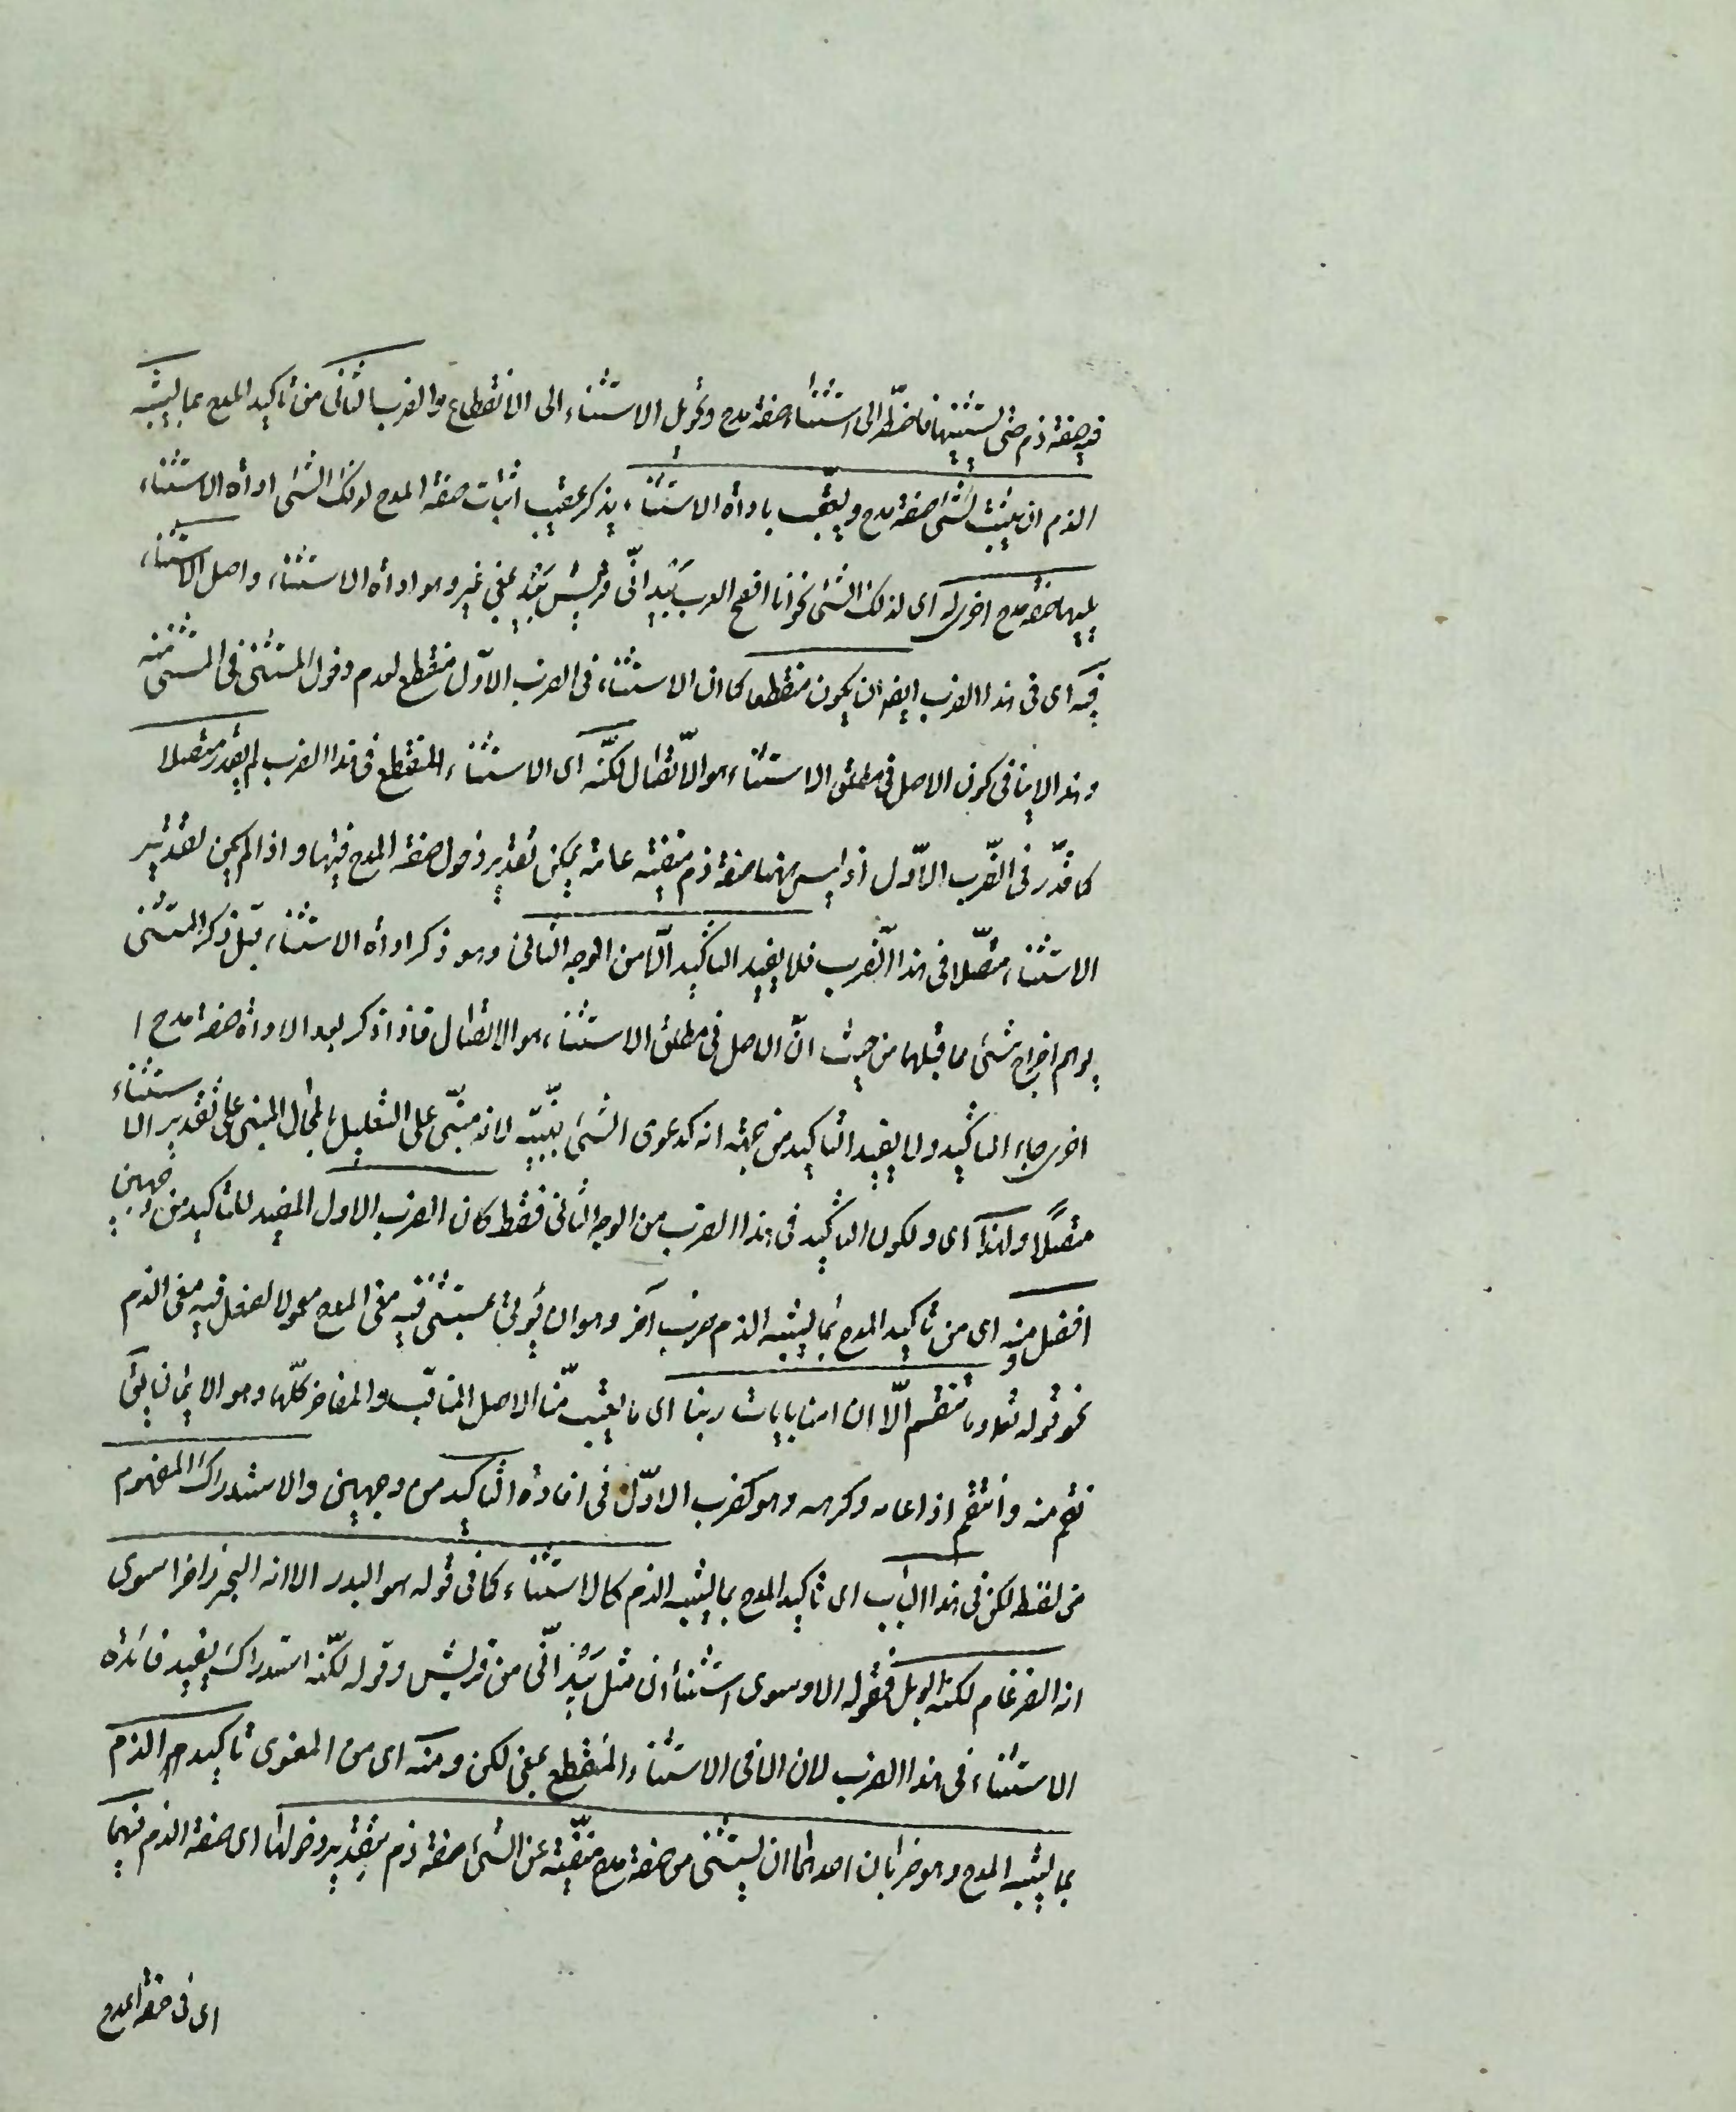 فيه صفة ذم حتى يستثنيها فاضطر الى استثناء صفة مدح وتحويل الاستثناء الى الانقطاع والضرب الثانى من تاكيد المدح بما يشبه
الذم ان يثبت لشئ صفة مدح ويعقب باداة الاستثناء يذكر عقيب اثبات صفة المدح لذلك الشئ اداة الاستثناء
يليها صفة مدح اخرى له اى لذلك الشئ نحو انا افصح العرب بَيْدَ انّى من قريش بيد بمعنى غير وهو اداة الاستثناء واصل الاستثناء
فيه اى فى هذا الضرب ايضا ان يكون منقطعا كما ان الاستثناء فى الضرب الاوّل منقطع لعدم دخول المستثنى فى المستثنى منه
وهذا لا ينافى كون الاصل فى مطلق الاستثناء هو الاتّصال لكنّه اى الاستثناء المنقطع فى هذا الضرب لم يقدر متصلا
كما قدّر فى الضّرب الاوّل اذ ليس ههنا صفة ذم منفية عامة يمكن تقدير دخول صفة المدح فيها واذا لم يمكن تقدير
الاستثناء متّصلا فى هذا الضّرب فلا يفيد التاكيد الّا من الوجه الثانى وهو ذكر اداة الاستثناء قبل ذكر المستثنى
يوهم اخراج شئ مما قبلها من حيث انّ الاصل فى مطلق الاستثناء هو الاتصال فاذا ذكر بعد الاداة صفة مدح ا
اخرى جاء التاكيد ولا يفيد التاكيد من جهة انه كدعوى الشئ ببيّنة لانه مبنىّ على التعليل بالمحال المبنى على تقدير الاستثناء
متصلًا ولهذا اى ولكون التاكيد فى هذا الضرب من الوجه الثانى فقط كان الضرب الاول المفيد للتاكيد من وجهين
افضل ومنه اى من تاكيد المدح بما يشبه الذم ضرب آخر وهو ان يؤتى بمستثنى فيه معنى المدح معمولا لفعل فيه معنى الذم
نحو قوله تعا وما تنقم الّا ان امنا بايات ربنا اى ما يعيب منّا الا اصل المناقب والمفاخر كلّها وهو الايمان يقال
نقم منه وانتقم اذا عابه وكرهه وهو كضرب الاوّل فى افادة التاكيد من وجهين والاستدراك المفهوم
من لفظ لكن فى هذا الباب اى تاكيد المدح بما يشبه الذم كالاستثناء كما فى قوله هو البدر الا انه البحر زاخرا سوى
انه الضرغام لكنه الوبل فقوله الا وسوى استثناءان مثل بَيْدَ انّى من قريش وقوله لكنّه استدراك يفيد فائدة
الاستثناء فى هذا الضرب لان الا فى الاستثناء المنقطع بمعنى لكن ومنه اى من المعنوى تاكيد الذم
بما يشبه المدح وهو ضربان احدهما ان يستثنى من صفة مدح منفيّة عن الشئ صفة ذم بتقدير دخولها اى صفة الذم فيها
اى فى صفة المدح